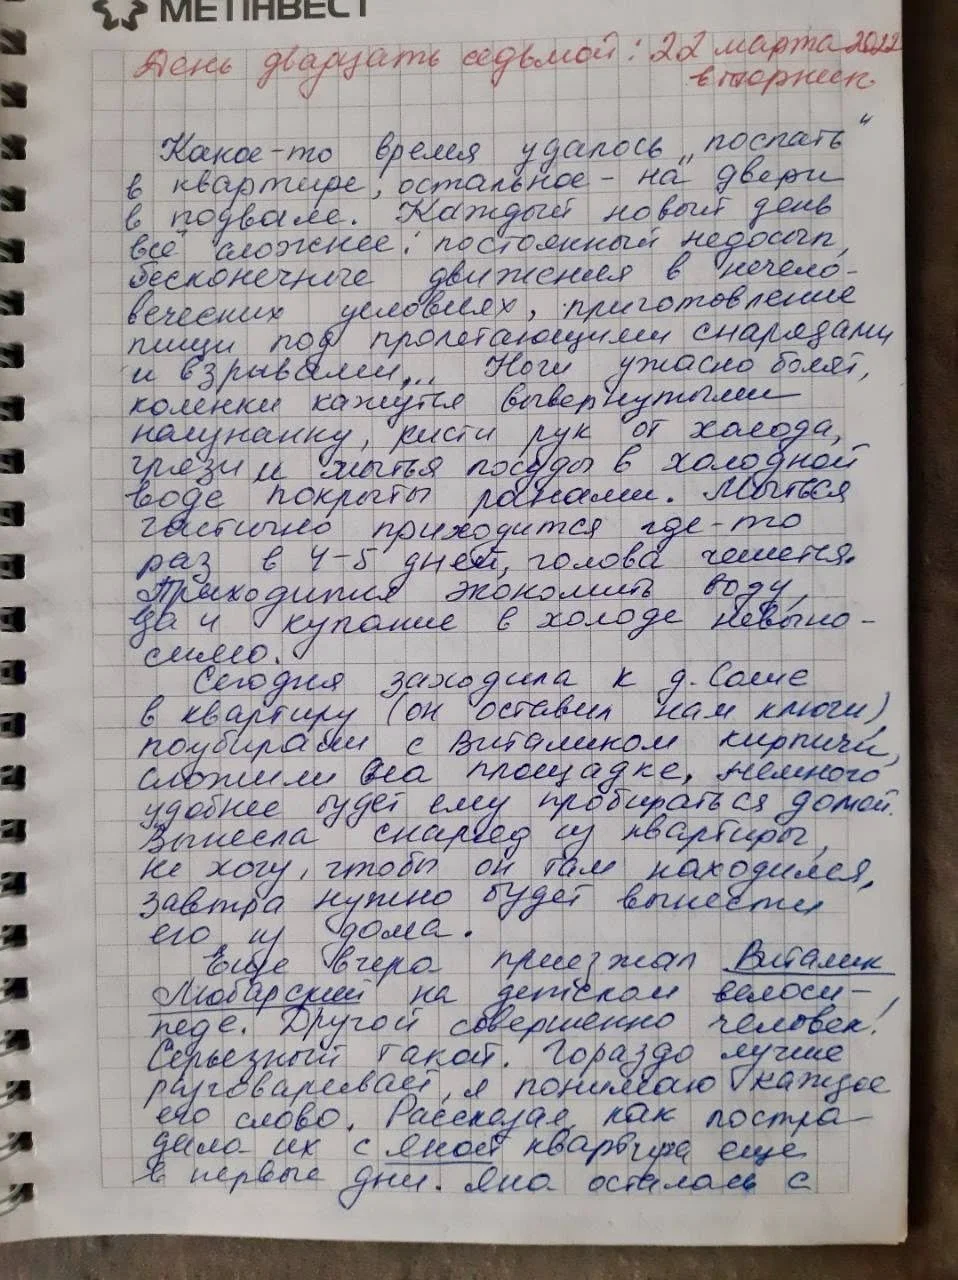 МЕТІНВЕСТ
День двадцать седьмой: 22 марта 2022
вторник
Какое-то время удалось „поспать"
в квартире, остальное - на двери
в подвале. Каждый новый день
всё сложнее: постоянный недосып,
бесконечные движения в нечело-
веческих условиях, приготовление
пищи под пролетающими снарядами
и взрывами... Ноги ужасно болят,
коленки кажутся вывернутыми
наизнанку, кисти рук от холода,
грязи и мытья посуды в холодной
воде покрыты ранами. Мыться
частично приходится где-то
раз в 4-5 дней, голова чешется.
Приходится экономить воду,
да и купание в холоде невыно-
симо.
Сегодня заходила к д. Саше
в квартиру (он оставил нам ключи)
поубирали с Виталиком кирпичи,
сложили на площадке, немного
удобнее будет ему пробираться домой.
Вынесла снаряд из квартиры,
не хочу, чтобы он там находился,
завтра нужно будет вынести
его из дома.
Еще вчера приезжал Виталик
Любарский на детском велоси-
педе. Другой совершенно человек!
Серьезный такой. Гораздо лучше
разговаривает, я понимаю каждое
его слово. Рассказал, как постра-
дала их с Яной квартира еще
в первые дни. Яна осталась с